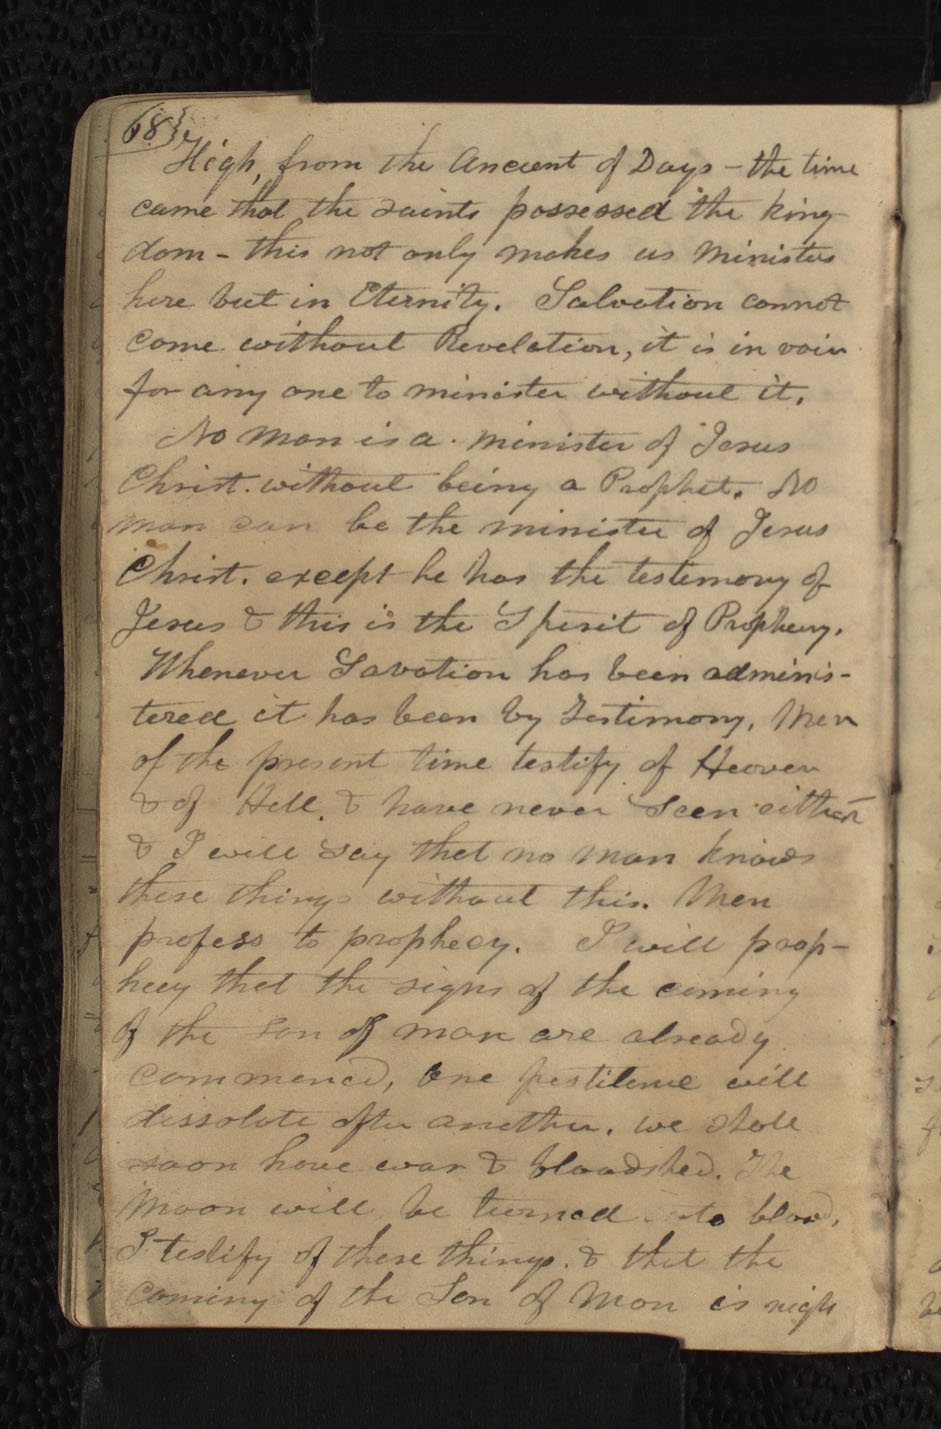 68}
High, from the Ancient of Days – the time
came that the saints possessed the king
dom – this not only makes us Ministers
here but in Eternity. Salvation cannot
come without Revelation, it is in vain
for any one to minister without it.
No man is a minister of Jesus
Christ. without being a Prophet. No
man can be the minister of Jesus
Christ. except he has the testimony of
Jesus & this is the Spirit of Prophecy.
Whenever Savation has been adminis-
tered it has been by Testimony. Men
of the present time testify of Heaven
& of Hell. & have never seen either
& I will say that no man knows
these things without this. Men
profess to prophecy. I will prop-
hecy that the signs of the coming
of the Son of man are already
commenced, One pestilence will
dissolate after another. we shall
soon have war & bloodshed. The
Moon will be turned to blood.
I testify of these things. & that the
coming of the Son of Man is nigh